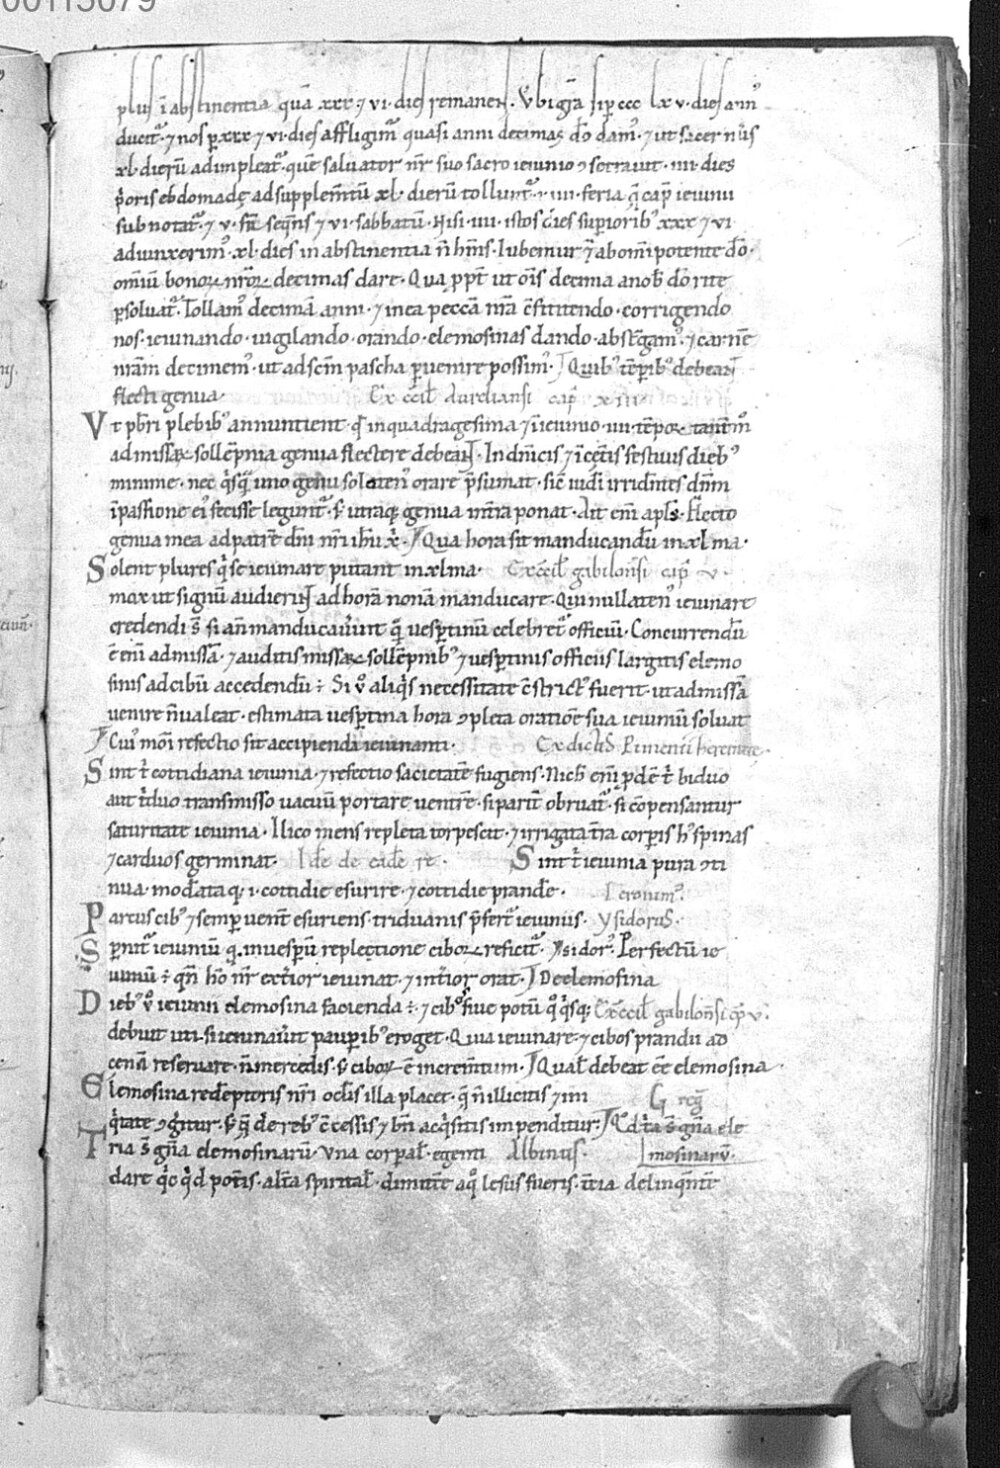 00113079
plus ī abstinentia quā xxx ⁊ vi · dies remanent. Vbi gr̄a si p ccc lx v · dies annꝰ
ducit᷑ · ⁊ nos p xxx ⁊ vi · dies affligim᷑ quasi anni decimas dō damꝰ · ⁊ ut sacer nūs
xl · dierū adimpleat᷑ · quē saluator nr̄ suo sacro ieiunio ɔsecrauit · iiii · dies
p̄oris ebdomadę ad supplem̄tū xl · dierū tollunt᷑ · iiii · feria q̄ cap̄ ieiunii
subnotat᷑ · ⁊ v · fr̄ı seqn̄s ⁊ vi · sabbatū · Nisi · iiii · istos dies supioribꝰ xxx ⁊ vi
adiunxerimꝰ · xl · dies in abstinentia n̄ hm̄s · Iubemur &#773; ab om̄ipotente dō ·
om̄iū bonoꝝ nr̄oꝝ decimas dare · Qua ppt̄ ut ōis decima a nob̄ dō rite
psoluat᷑ · Tollamꝰ decimā anni · ⁊ in ea peccā nr̄a c̄fitendo · corrigendo
nos · ieiunando · uigilando · orando · elemosinas dando · abstn̄gamꝰ · ⁊ carnē
nr̄am decimemꝰ · ut ad scm̄ pascha puenire possimꝰ · Quibꝰ tēpribꝰ debeant
flecti genua · Ex c̄cil̄ Aureliansi cap xiii
Vt pbr̄i plebibꝰ annuntient · q̄ in quadragesima ⁊ ī ieiunio · iiii · tēpoꝝ · tantm̊
ad missaꝝ sollēpnia genua flectere debeant · In dn̄icis ⁊ ī cet̄is festiuis diebꝰ
minime · nec q̄sq̄ uno genu solotenꝰ orare p̄sumat · sic̄ iudı̄ irridn̄tes dn̄m
ī passione eiꝰ fecisse legunt᷑ · s̄ utraq; genua in t̄ra ponat · Ait eni̅ apl̄s · Flecto
genua mea ad patrē dn̄i nr̄i ih̄u x̄ · Qua hora sit manducandū in xlma ·
Solent plures q̄ se ieiunare putant in xlma · Ex c̄cil̄ gabilon̄si cap̄ v ·
mox ut signū audierint ad horā nonā manducare · Qui nullatenꝰ ieiunare
credendi s̄ si an̄ manducauerint q̄ uesptinū celebret᷑ officiū · Concurrendū
ē eni̅ ad missā · ⁊ auditis missaꝝ sollēpnibꝰ ⁊ uesptinis officiis largitis elemo
sinis ad cibū accedendū ÷ Si ů aliq̄s necessitate c̄strictꝰ fuerit · ut ad missā
uenire n̄ ualeat · estimata uesptina hora ɔpleta oratiōe sua ieiuniū soluat
Cuiꝰ mōi refectio sit accipienda ieiunanti · Ex dictis Pimenii heremite ·
Sint t̄ cottidiana ieiunia · ⁊ refectio sacietatē fugiens · Nich̄ eni̅ pdē t̄ biduo
aut t̄duo transmisso uacuū portare uentrē · si parit̄ obruat᷑ · si cōpensantur
saturitate ieiunia · Ilico mens repleta torpescit · ⁊ irrigata t̄ra corpis h̄ spinas
⁊ carduos germinat · Idē de eadē re · Sint t̄ ieiunia pura ɔti
nua · mod̄ata q; · i · cottidie esurire · ⁊ cottidie prandē · Ieronimꝰ
Parcus cibꝰ ⁊ semp uent̄ esuriens · triduanis p̄fert᷑ ieiuniis · ysidorus ·
Spnit᷑ ieiuniū q · in uespū replectione ciboꝝ reficit᷑ · ysidorꝰ · Perfectū ie
iuniū ÷ qn̄ hō nr̄ ext̄ior ieiunat · ⁊ int̄ior orat · De elemosina
Diebꝰ ů ieiunii elemosina facienda ÷ · ⁊ cibꝰ siue potū q̊ q̄sq; Ex c̄cil̄ gabilon̄si cp̄ v ·
debuit uti · si ieiunauit paupibꝰ eroget · Quia ieiunare · ⁊ cibos prandii ad
cenā reseruare · n̄ mercedis · s̄ ciboꝝ ē incrementum · Qual̄ debeat ēē elemosina
Elemosina redēptoris nr̄i oclis illa placet · q̄ n̄ illicitis ⁊ ini G reg̅
q̄tate ɔgit᷑ur · s̄ q̄ de rebꝰ c̄cessis ⁊ bn̄ acq̄sitis impenditur · Qd t̄a s̄ gn̄a ele
Tria s̄ gn̄a elemosinarū · Vna corpal̄ · egenti Albinus · mosinarū ·
dare q̄c q̄d potis · alt̄a spirital̄ · dimitt̄e a q̊ lesus fueris · t̄tia delinq̄nte